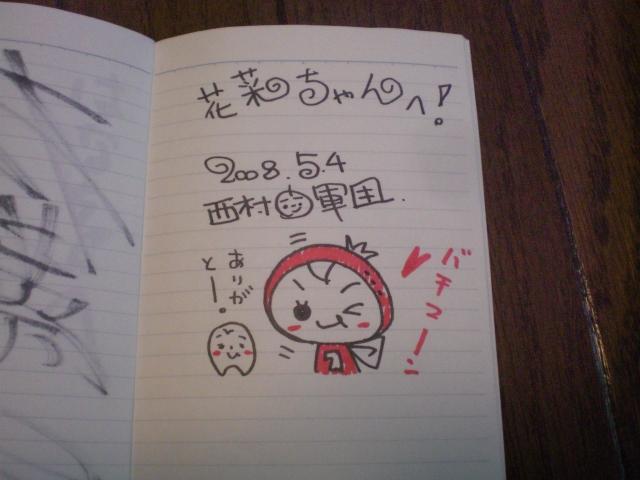 花菜ちゃんへ!
2008.5.4
西村軍団.
ありが
とー!
バチコーン